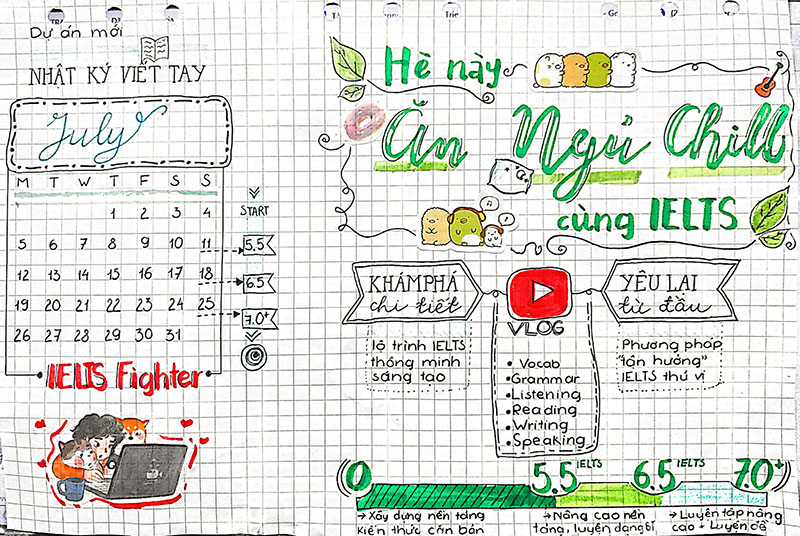 Dự án mới
NHẬT KÝ VIẾT TAY
July
M T W T F S S
1 2 3 4
5 6 7 8 9 10 11
12 13 14 15 16 17 18
19 20 21 22 23 24 25
26 27 28 29 30 31
START
5.5
6.5
7.0+
IELTS Fighter
Hè này
Ăn Ngủ Chill
cùng IELTS
KHÁM PHÁ
chi tiết
lộ trình IELTS
thông minh
sáng tạo
VLOG
• Vocab
• Grammar
• Listening
• Reading
• Writing
• Speaking
YÊU LẠI
từ đầu
Phương pháp
"tận hưởng"
IELTS thú vị
0 5.5 IELTS 6.5 IELTS 7.0+
→ Xây dựng nền tảng
Kiến thức căn bản
→ Nâng cao nền
tảng, luyện dạng bị
→ Luyện tập nâng
cao + Luyện đề